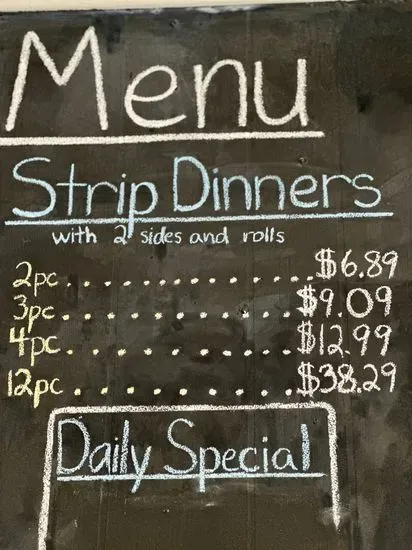 Menu
Strip Dinners
with 2 sides and rolls
2pc..................$6.89
3pc..................$9.09
4pc..................$12.99
12pc.................$38.29
Daily Special